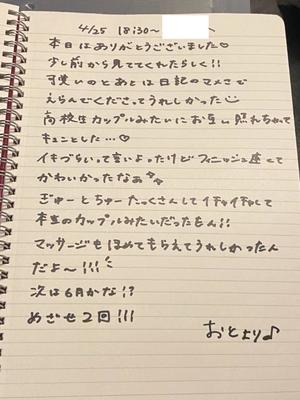 4/25 18:30〜
本日はありがとうございました♡
少し前から見ててくれたらしく!!
可愛いのとあとは日記のマメさで
えらんでくださってうれしかった
高校生カップルみたいにお互い照れちゃって
キュンとした…♡
イキづらいって言いよったけどフィニッシュ座くて
かわいかったなぁ
ぎゅーとちゅーたっくさんして イチャイチャして
本当のカップルみたいだったもん!!
マッサージもほめてもらえてうれしかったん
だよ〜!!!
次は6月かな!?
めざせ2回!!!
おとより♪